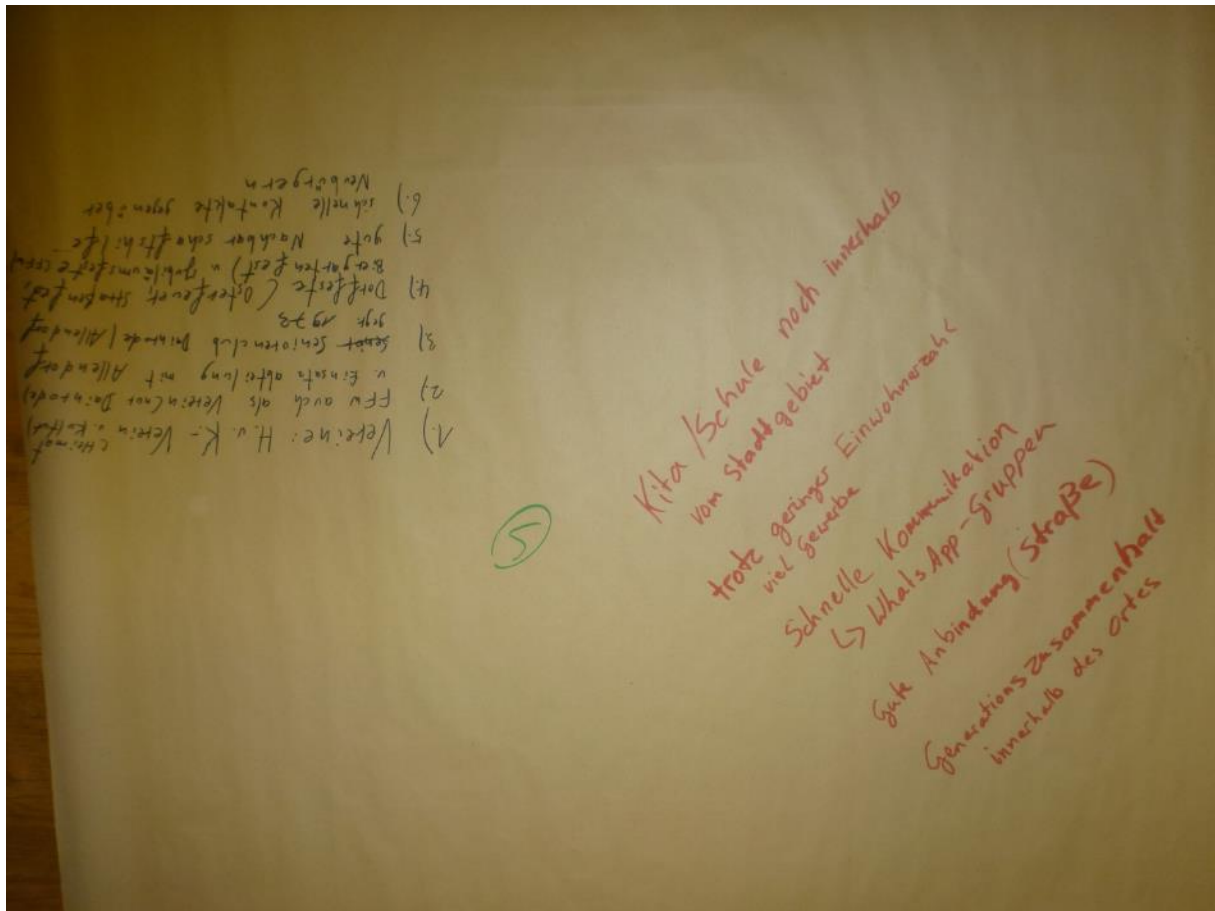 1.) Vereine: H. u. K.- Verein (Heimat u. Kultur)
2.) FFW auch als Verein (nur Dainrode)
u. Einsatzabteilung mit Allendorf
3.) Seniorenclub Dainrode / Allendorf
gegr. 1973
4.) Dorffeste (Osterfeuer, Straßenfest,
Biergartenfest) u. Jubiläumsfeste (FFW)
5.) gute Nachbarschaftshilfe
6.) schnelle Kontakte gegenüber
Neubürgern
5
Kita / Schule noch innerhalb
vom Stadtgebiet
trotz geringer Einwohnerzahl
viel Gewerbe
Schnelle Kommunikation
↳ WhatsApp-Gruppen
Gute Anbindung (Straße)
Generationszusammenhalt
innerhalb des Ortes